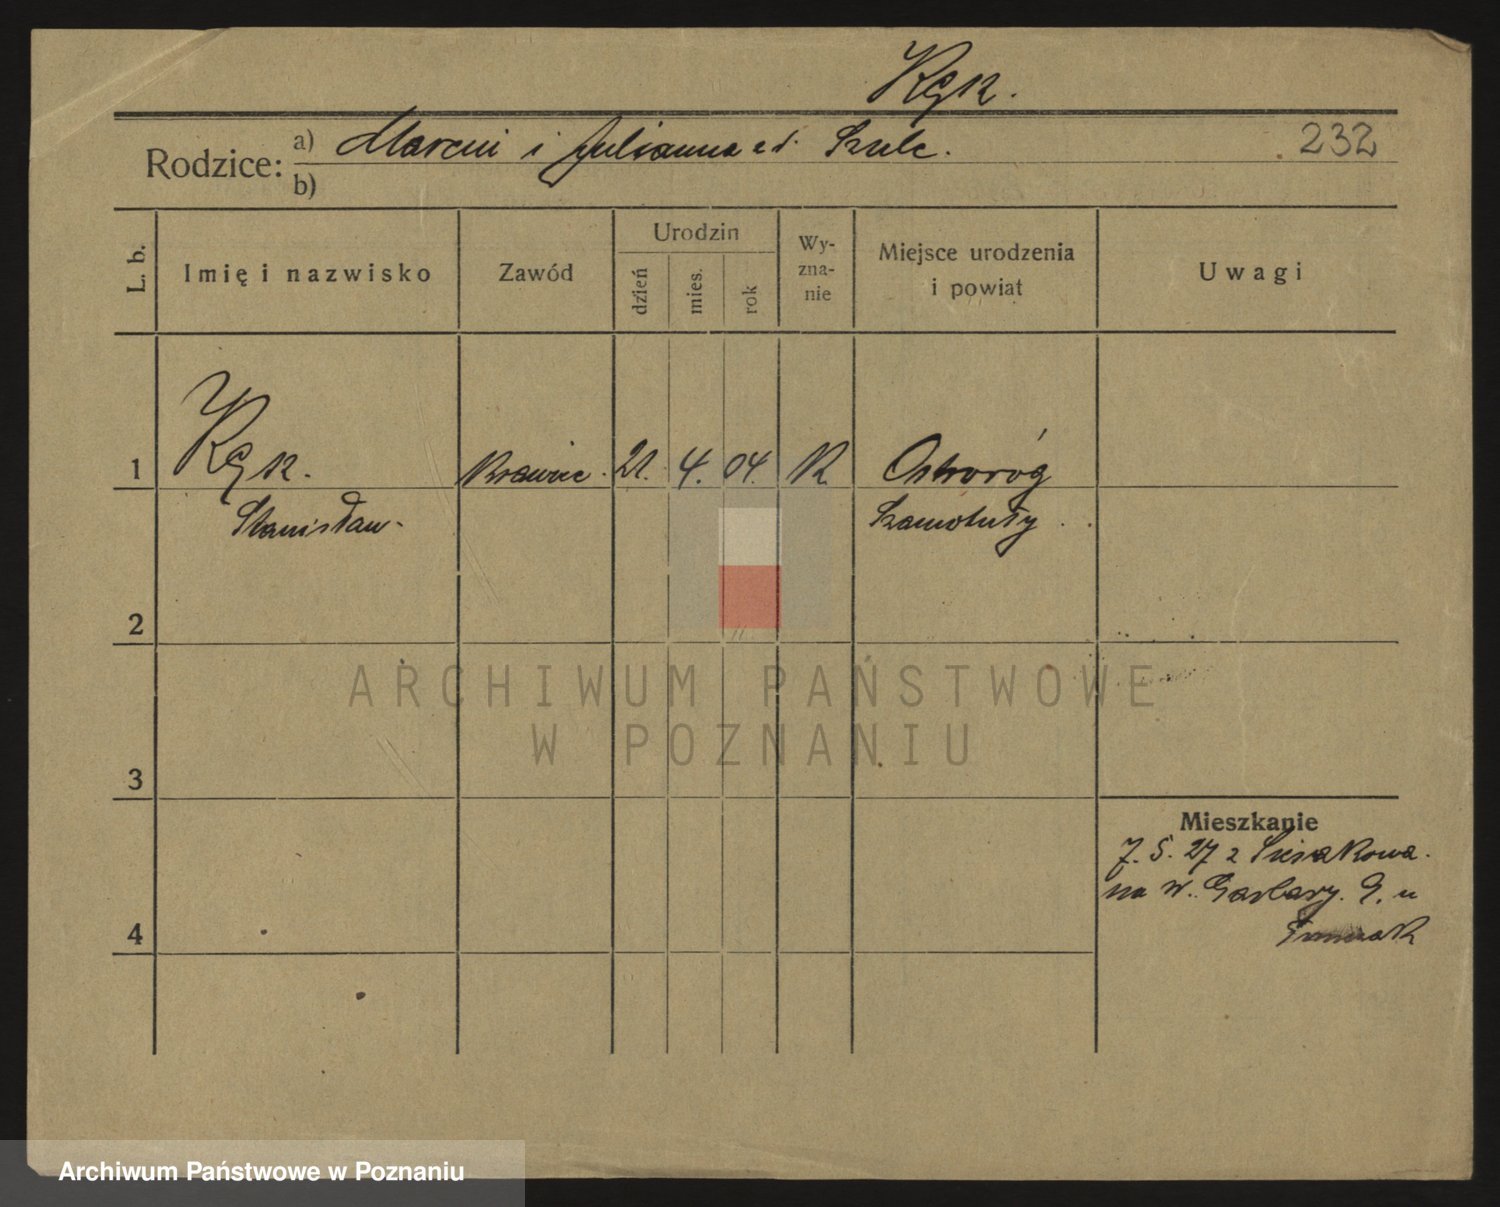 Kęk.
Rodzice: a) Marcin i Julianna z d. Szulc.
232
b)
L. b.
Imię i nazwisko
Zawód
Urodzin
dzień
mies.
rok
Wy-
zna-
nie
Miejsce urodzenia
i powiat
Uwagi
1 Kęk. Krawiec. 21. 4. 04. K Ostroróg
Stanisław Szamotuły
2
ARCHIWUM PAŃSTWOWE
W POZNANIU
3
Mieszkanie
7. 5. 27 z
na W. Garbary. 9. u
4
Archiwum Państwowe w Poznaniu